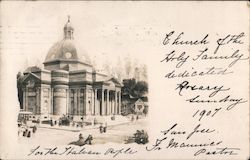 Church of the
Holy Family
dedicated
Rosary
Sunday
1907
San Jose
For the Italian People